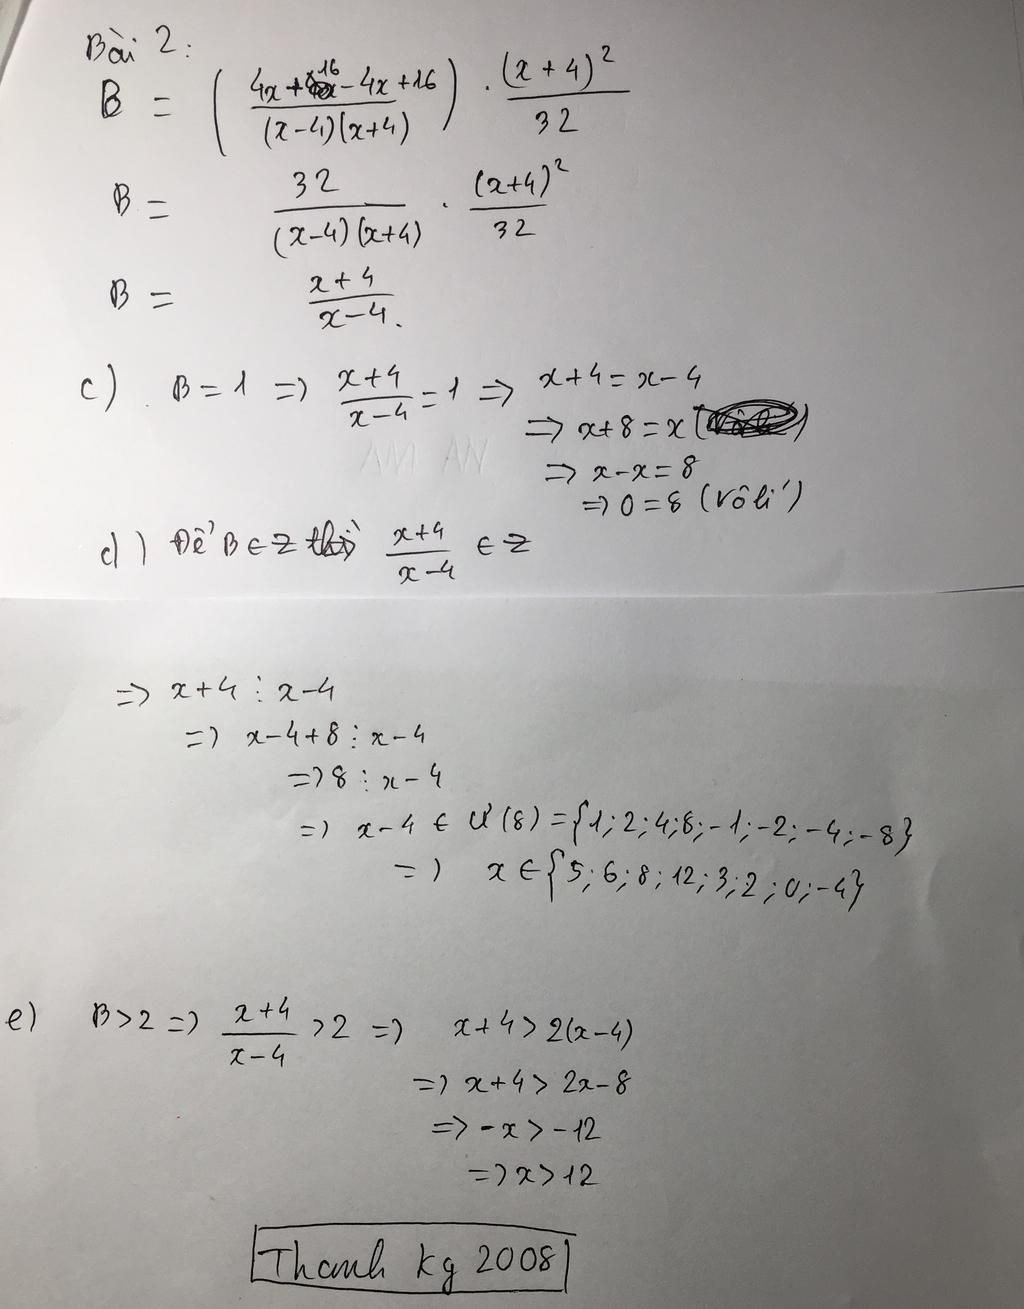 Bài 2:
B = ( (4x+16-4x+16)/((x-4)(x+4)) ) . (x+4)²/32
B = 32/((x-4)(x+4)) . (x+4)²/32
B = (x+4)/(x-4).
c) B=1 => (x+4)/(x-4) = 1 => x+4=x-4
=> x+8=x
=> x-x=8
=> 0=8 (vôlí)
d) Để B∈Z thì (x+4)/(x-4) ∈ Z
=> x+4 ⋮ x-4
=> x-4+8 ⋮ x-4
=> 8 ⋮ x-4
=> x-4 ∈ Ư(8) = {1; 2; 4; 8; -1; -2; -4; -8}
=> x ∈ {5; 6; 8; 12; 3; 2; 0; -4}
e) B>2 => (x+4)/(x-4) >2 => x+4>2(x-4)
=> x+4> 2x-8
=> -x>-12
=> x>12
Thanh kg 2008